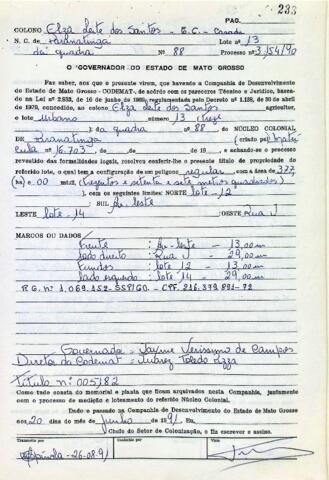 PAG. 233
COLONO Elza Leite dos Santos - E.C. - Casada
N. C. de Paranatinga LOTE Nº 13
da quadra Nº 88 Processo nº 3.154/90
O GOVERNADOR DO ESTADO DE MATO GROSSO
Faz saber, aos que o presente virem, que havendo a Companhia de Desenvolvimento
do Estado de Mato Grosso - CODEMAT-, de acôrdo com os pareceres Técnico e Jurídico, basea-
do na Lei nº 2.933, de 10 de junho de 1969, regulamentada pelo Decreto nº 1.128, de 30 de abril
de 1970, concedido, ao colono Elza Leite dos Santos agricultor,
o lote urbano número 13 (treze
da quadra) nº 88, do NÚCLEO COLONIAL
DE Paranatinga (criado pela Matrí
cula nº 16.703 de de de 19 ), e achando-se o processo
revestido das formalidades legais, resolveu conferir-lhe o presente título de propriedade do
referido lote, o qual tem a configuração de um polígono regular, com a área de 377,
(ha) 00 mt2. (Trezentos e setenta e sete metros quadrados)
), com os seguintes limites: NORTE lote - 12
SUL Av. leste
LESTE lote - 14 OESTE Rua J
MARCOS OU DADOS:
Frente : Av - leste - 13,00 m
lado direito : Rua J - 29,00 m
Fundos : lote 12 - 13,00 m
lado esquerdo : lote 14 - 29,00 m
R.G. nº 1.069.152-SSP/GO. - CPF. 216.379.891-72
Governador = Jayme Verissimo de Campos
Diretor da Codemat = Juarez Toledo Pizza
Título nº 005182
Como tudo consta do memorial e planta que ficam arquivados nesta Companhia, juntamente
com o processo de medição e loteamento do referido Núcleo Colonial.
Dado e passado na Companhia de Desenvolvimento do Estado de Mato Grosso
aos 20 dias do mês de junho de 1991. Eu,
Chefe do Setor de Colonização, o fiz escrever e assino.
Transcrito por Conferido por Visto
26-08-91